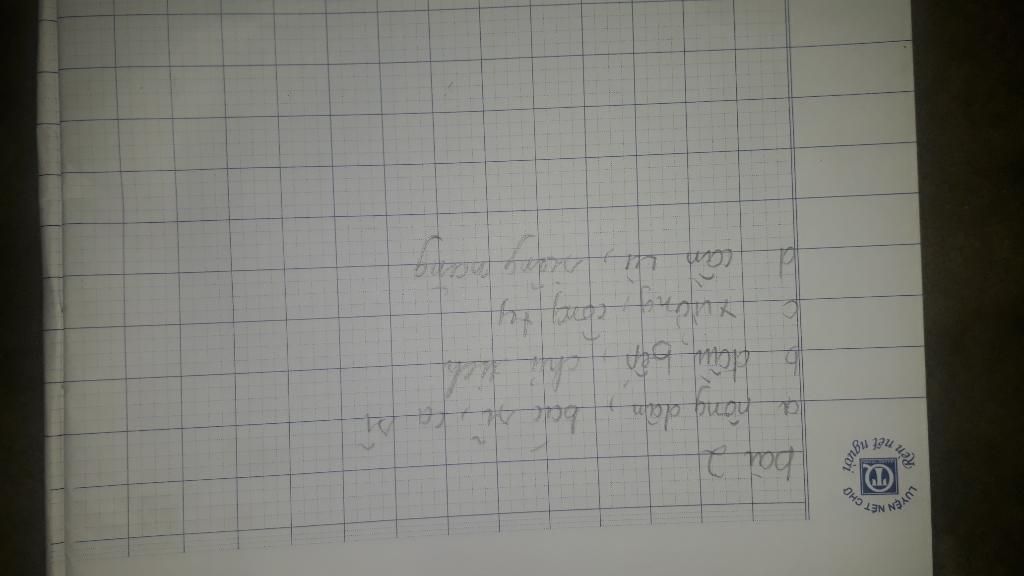 LUYỆN NÉT CHỮ
Rèn nét người
bài 2
a nông dân, bác sĩ, ca sĩ
b đầu bếp, chủ tịch
c xưởng, công ty
d cần cù, năng